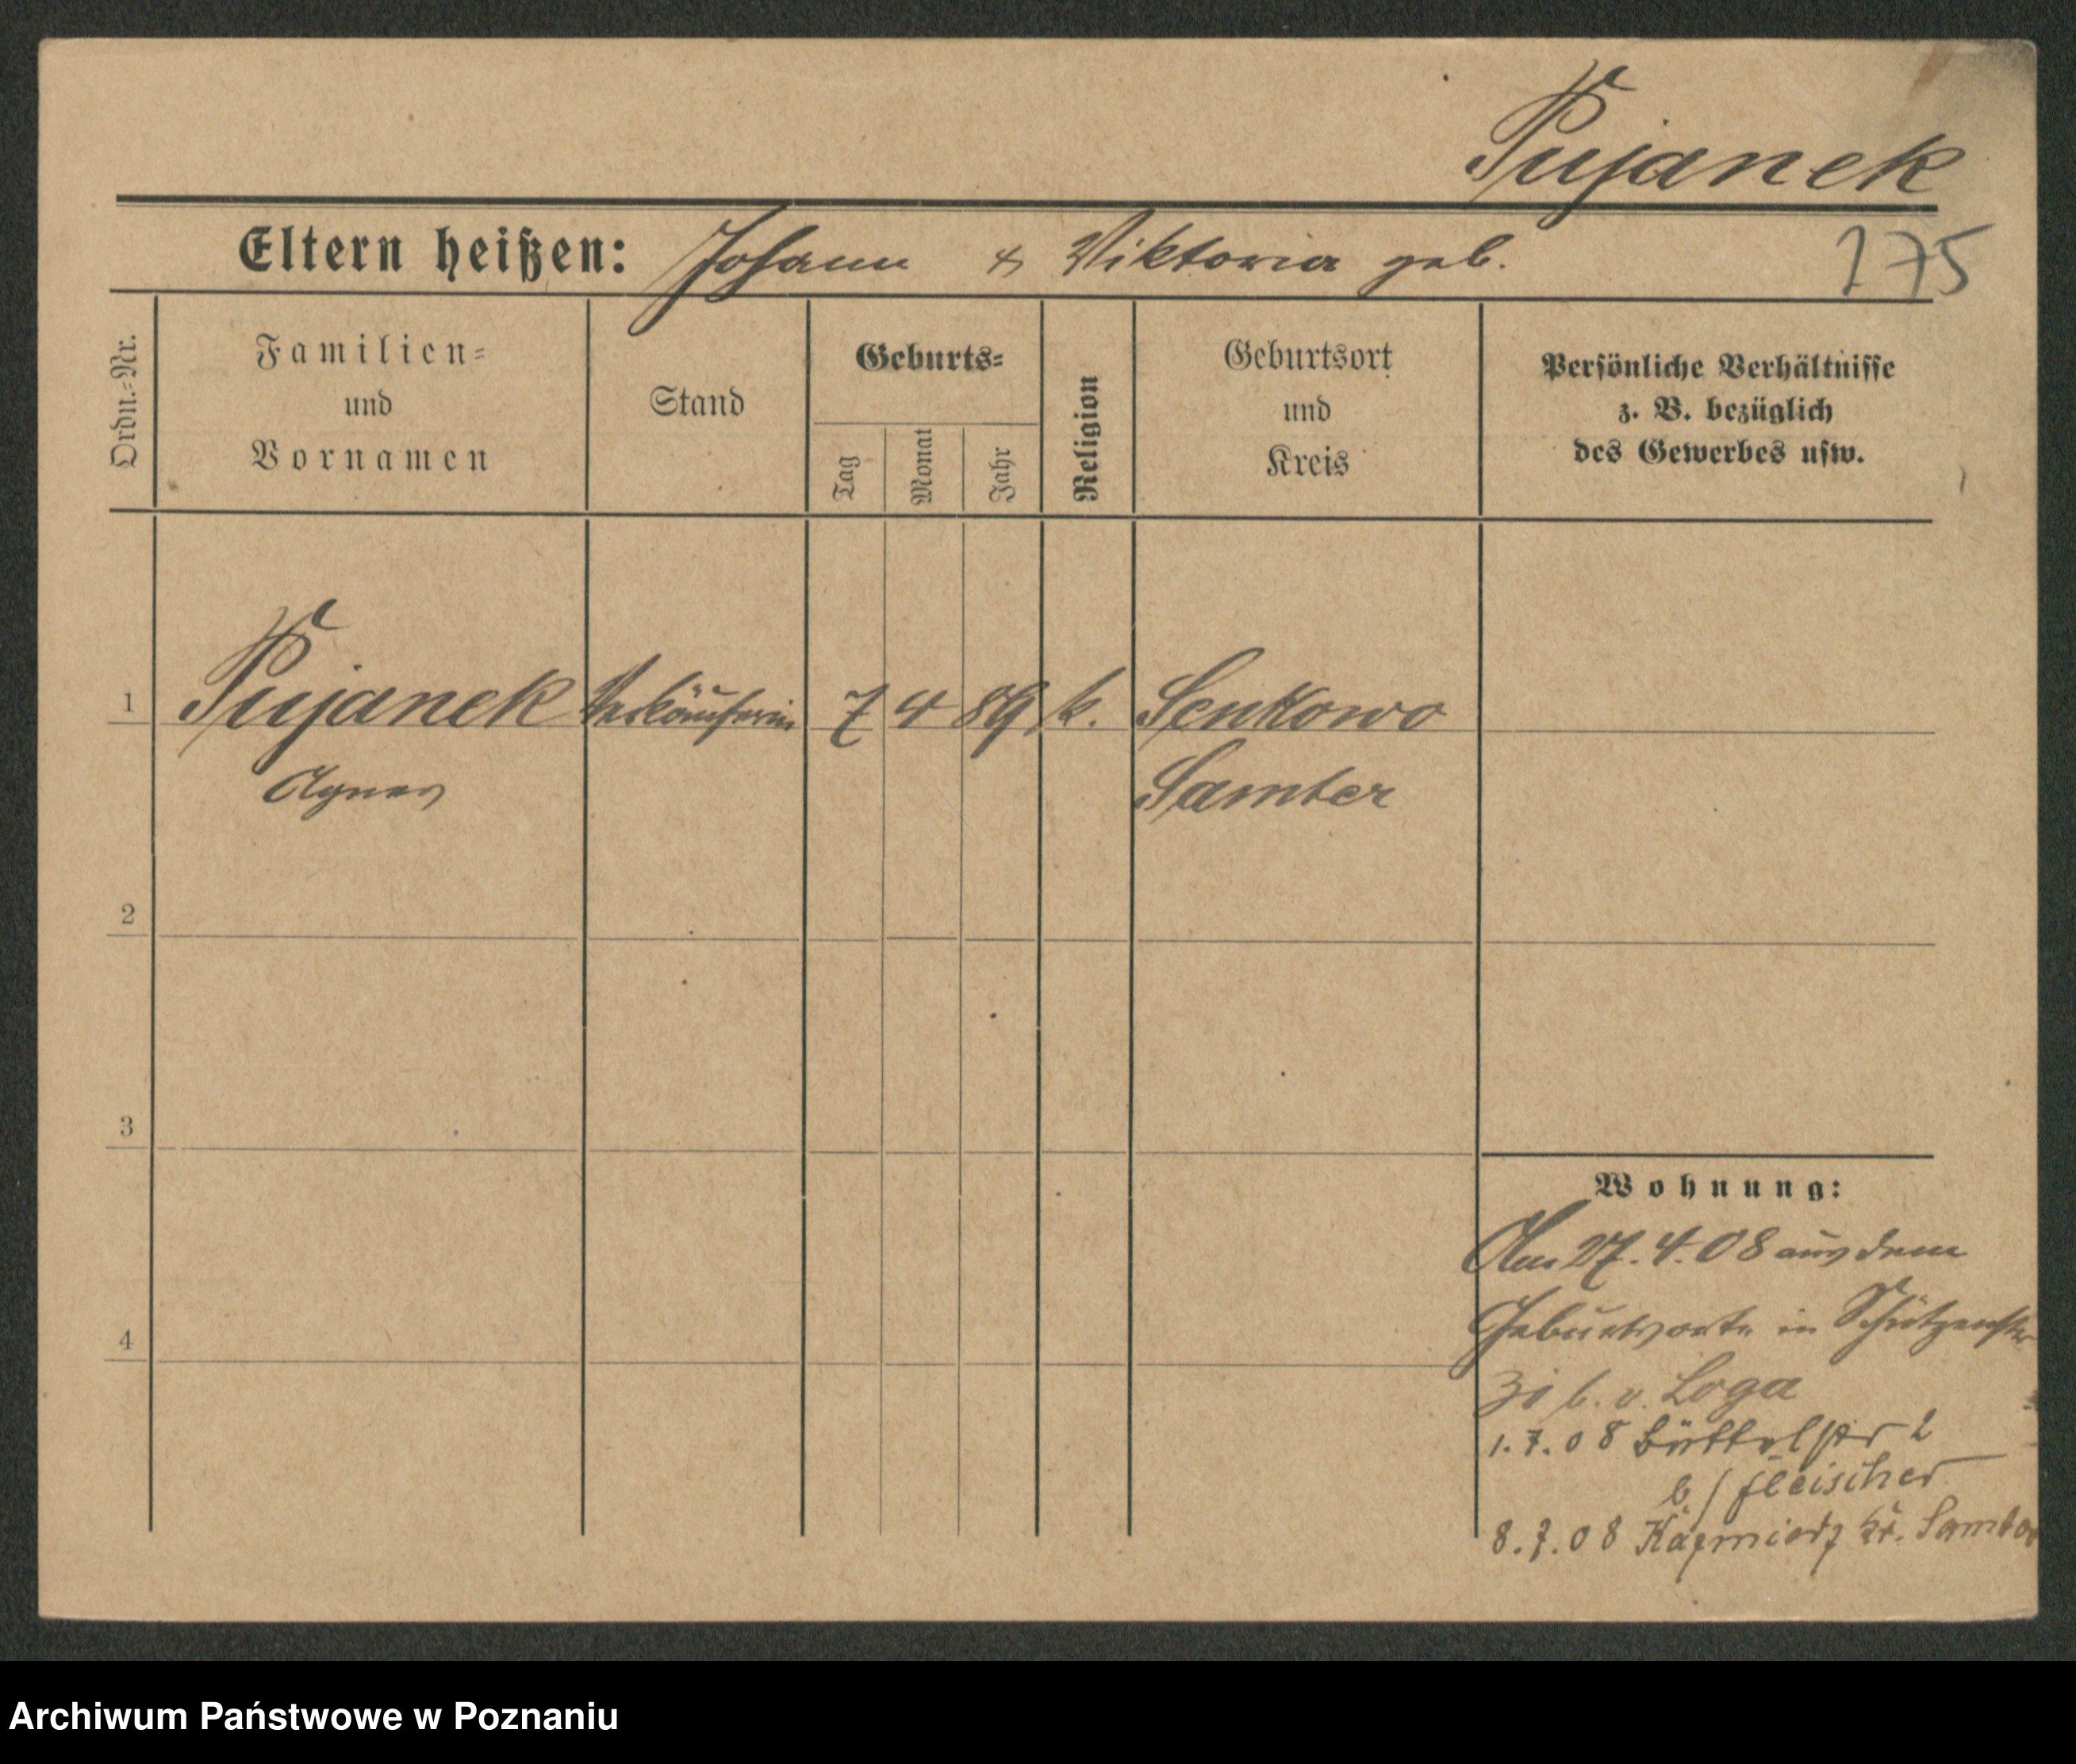 Pujanek
Eltern heißen: Johann & Viktoria geb.
175
Ordn.-Nr.
Familien-
und
Vornamen
Stand
Geburts-
Tag
Monat
Jahr
Religion
Geburtsort
und
Kreis
Persönliche Verhältnisse
z. B. bezüglich
des Gewerbes usw.
1 Pujanek Verkäuferin 7 4 89 k. Senkowo
Agnes Samter
2
3
4
Wohnung:
Am 27.4.08 aus dem
Geburtsorte in Schützenstr
31 b. v. Loga
1.7.08 Büttelstr 2
b/ Fleischer
8.7.08 Kazmierz Kr. Samter
Archiwum Państwowe w Poznaniu